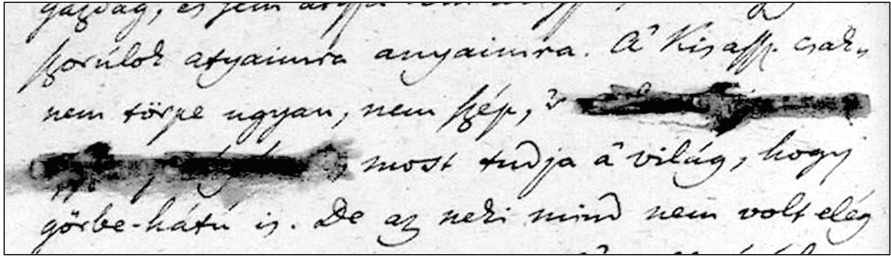 gazdag, és sem
szorúlok atyaimra anyaimra. A' Kisassz. csak
nem törpe ugyan, nem szép, 's
most tudja a' világ, hogy
görbe-hátú is. De az neki mind nem volt elég